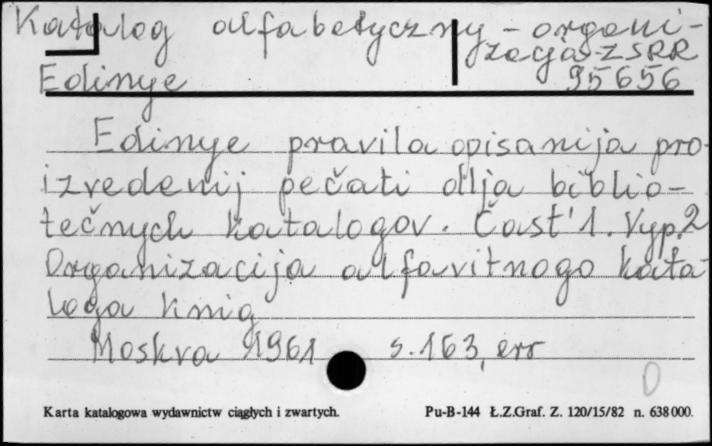 Katalog alfabetyczny - organi-
zacja - ZSRR
Edinye 95656
Edinye pravila opisanija pro-
izvedenij pečati dlja biblio-
tečnych katalogov. Čast' 1. Vyp. 2
Organizacija alfavitnogo kata-
loga knig
Moskva 1961 s. 163, err
Karta katalogowa wydawnictw ciągłych i zwartych. Pu-B-144 Ł.Z.Graf. Z. 120/15/82 n. 638 000.